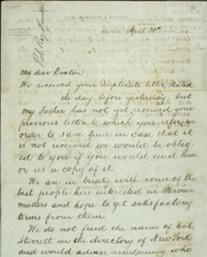 April 30th
My dear Doctor
We received your duplicate letter, dated
the day before yesterday, but
my Father has not yet received your
previous letter to which you reference
order to save time in case that it
is not received we would be oblig
ed to you if you would send him
or us a copy of it.
We are in treaty with some of the
best people here interested in Mexican
matters and hope to get satisfactory
terms from them.
We do not find the name of Col.
Sterrett in the directory of New York
and would advise